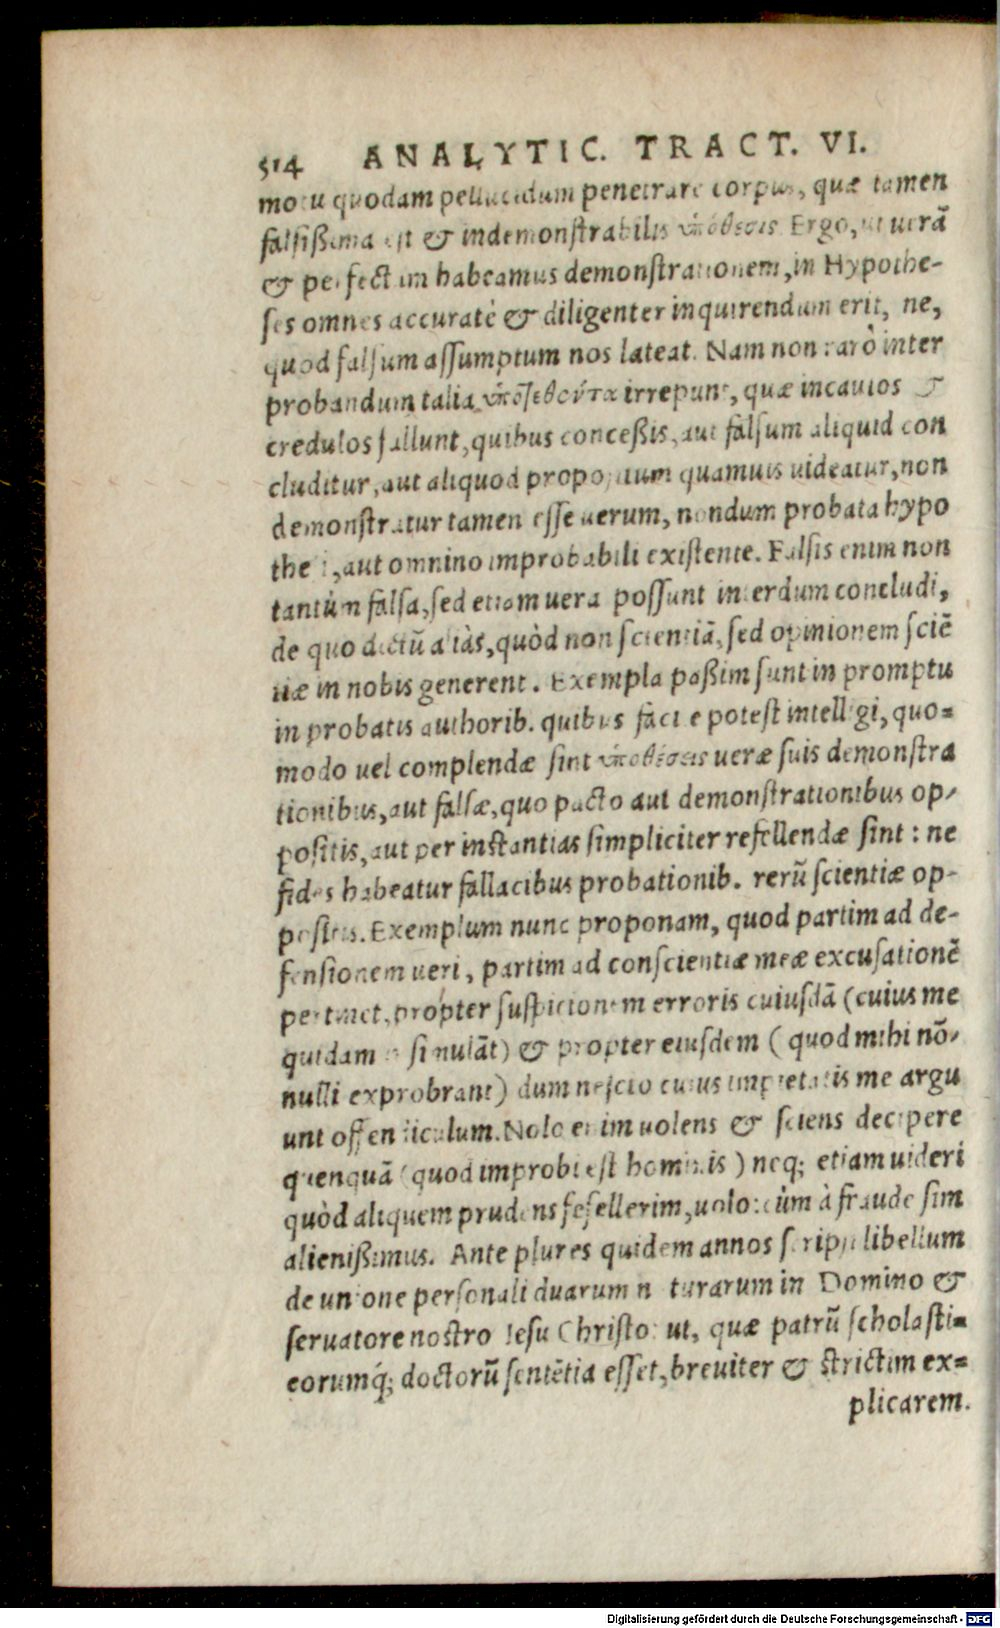 514 ANALYTIC. TRACT. VI.
motu quodam pellucidum penetrare corpus, quæ tamen
falsißima est & indemonstrabilis ὑπόθεσις. Ergo, ut uerã
& perfectam habeamus demonstrationem, in Hypothe-
ses omnes accuratè & diligenter inquirendum erit, ne,
quod falsum assumptum nos lateat. Nam non rarò inter
probandum talia irrepunt, quæ incautos &
credulos fallunt, quibus conceßis, aut falsum aliquid con
cluditur, aut aliquod propositum quamuis uideatur, non
demonstratur tamen esse uerum, nondum probata hypo
thesi, aut omnino improbabili existente. Falsis enim non
tantùm falsa, sed etiam uera possunt interdum concludi,
de quo dictũ aliàs, quòd non scientiã, sed opinionem sciẽ
tiæ in nobis generent. Exempla paßim sunt in promptu
in probatis authorib. quibus facile potest intelligi, quo-
modo uel complendæ sint ὑποθέσεις ueræ suis demonstra
tionibus, aut falsæ, quo pacto aut demonstrationibus op-
positis, aut per instantias simpliciter refellendæ sint: ne
fides habeatur fallacibus probationib. rerũ scientiæ op-
positis. Exemplum nunc proponam, quod partim ad de-
fensionem ueri, partim ad conscientiæ meæ excusationẽ
pertinet, propter suspicionem erroris cuiusdã (cuius me
quidam insimulãt) & propter eiusdem (quod mihi nõ-
nulli exprobrant) dum nescio cuius impietatis me argu
unt offendiculum. Nolo enim uolens & sciens decipere
quenquã (quod improbi est hominis) neq; etiam uideri
quòd aliquem prudens fefellerim, uolo: cùm à fraude sim
alienißimus. Ante plures quidem annos scripsi libellum
de unione personali duarum naturarum in Domino &
seruatore nostro Iesu Christo: ut, quæ patrũ scholasti-
corumq́; doctorũ sentẽtia esset, breuiter & strictim ex-
plicarem.
Digitalisierung gefördert durch die Deutsche Forschungsgemeinschaft - DFG